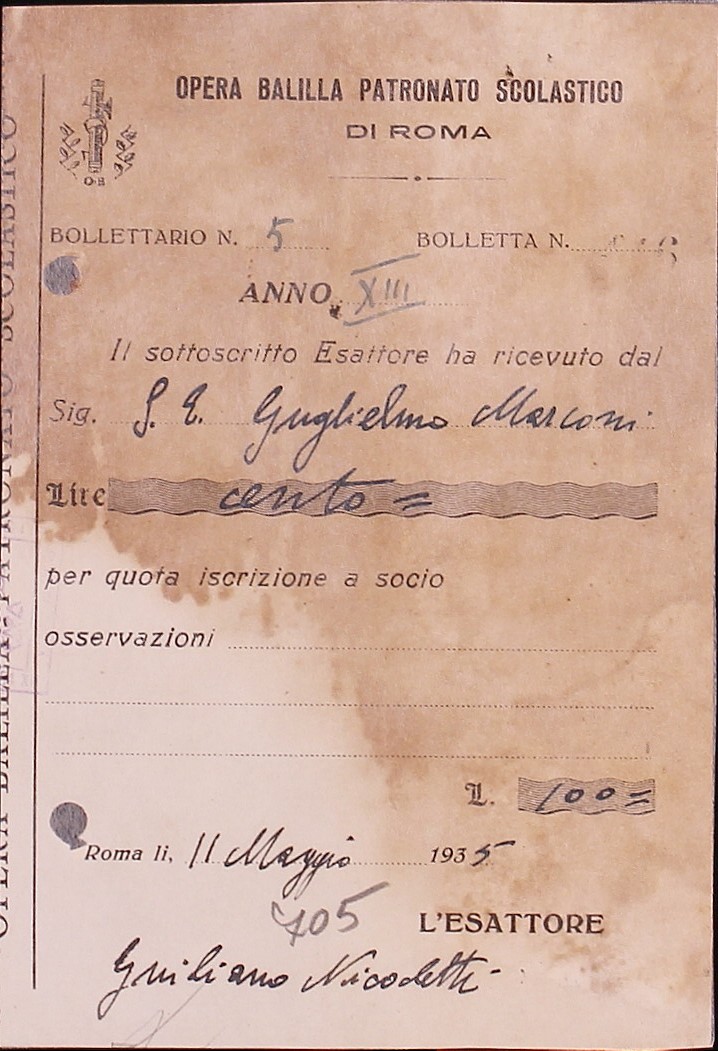 OPERA BALILLA PATRONATO SCOLASTICO
DI ROMA
O·B
BOLLETTARIO N. 5 BOLLETTA N.
ANNO XIII
Il sottoscritto Esattore ha ricevuto dal
Sig. S. E. Guglielmo Marconi
Lire cento =
per quota iscrizione a socio
osservazioni
L. 100=
Roma li, 11 Maggio 1935
705
L'ESATTORE
Giuliano Nicoletti
OPERA BALILLA - PATRONATO SCOLASTICO